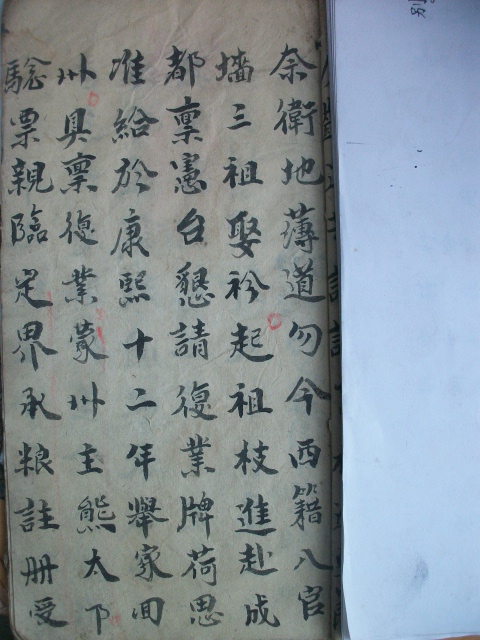 奈衛地薄道勿今西籍八官
墻三祖娶衿起祖枝進赴成
都禀憲台懇請復業牌荷思
准給於康熙十二年舉家回
州具禀復業蒙州主熊太下
騐票親臨定界承粮註册受